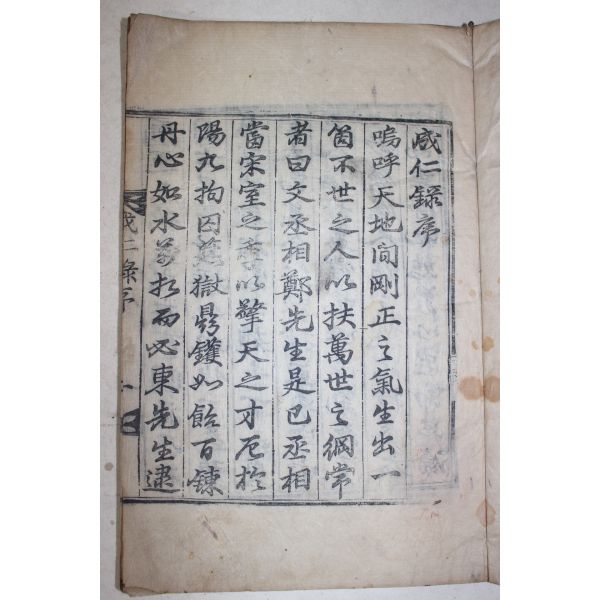 成仁錄序
嗚呼天地間剛正之氣生出一
箇不世之人以扶萬世之綱常
者曰文丞相鄭先生是已丞相
當宋室之季以擎天之才厄於
陽九拘囚燕獄鼎鑊如飴百鍊
丹心如水萬折而必東先生逮
成仁錄序